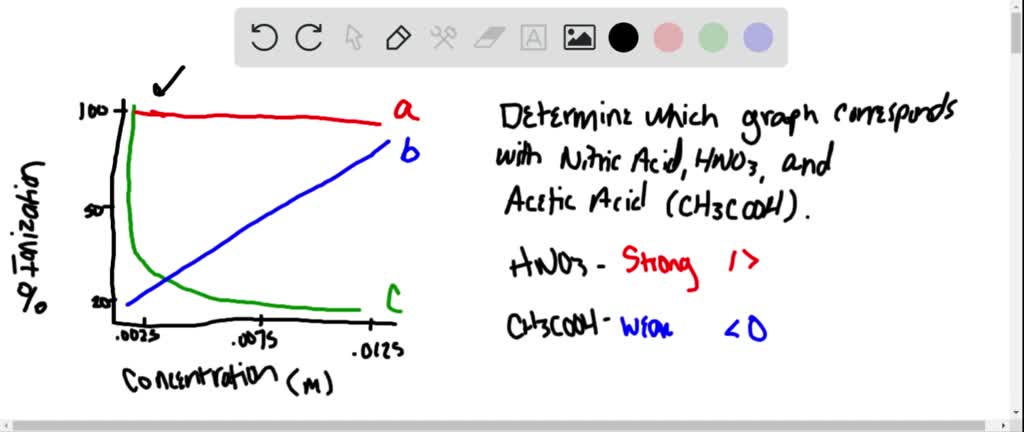 100
50
20
% Ionization
.0025
.0075
.0125
Concentration (M)
a
b
c
Determine which graph corresponds
with Nitric Acid, HNO3, and
Acetic Acid (CH3COOH).
HNO3 - Strong 1>
CH3COOH - Weak <0
A